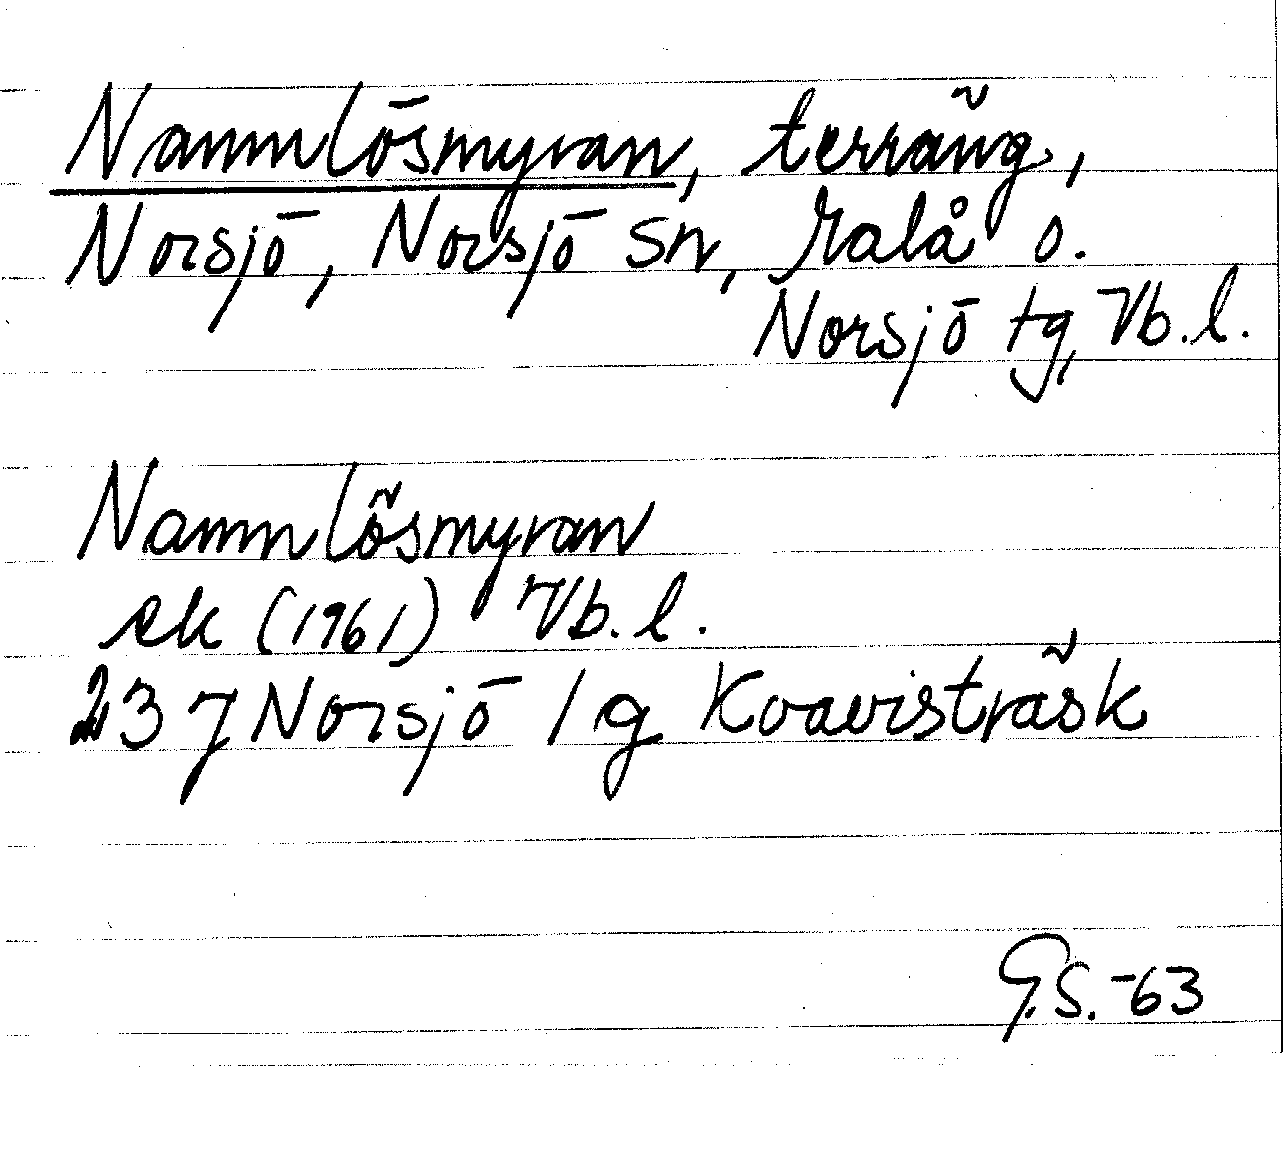 Namnlösmyran, terräng,
Norsjö, Norsjö sn, Malå o.
Norsjö tg, Vb. l.
Namnlösmyran
ek (1961) Vb. l.
237 Norsjö / g Kvavisträsk
G.S. -63